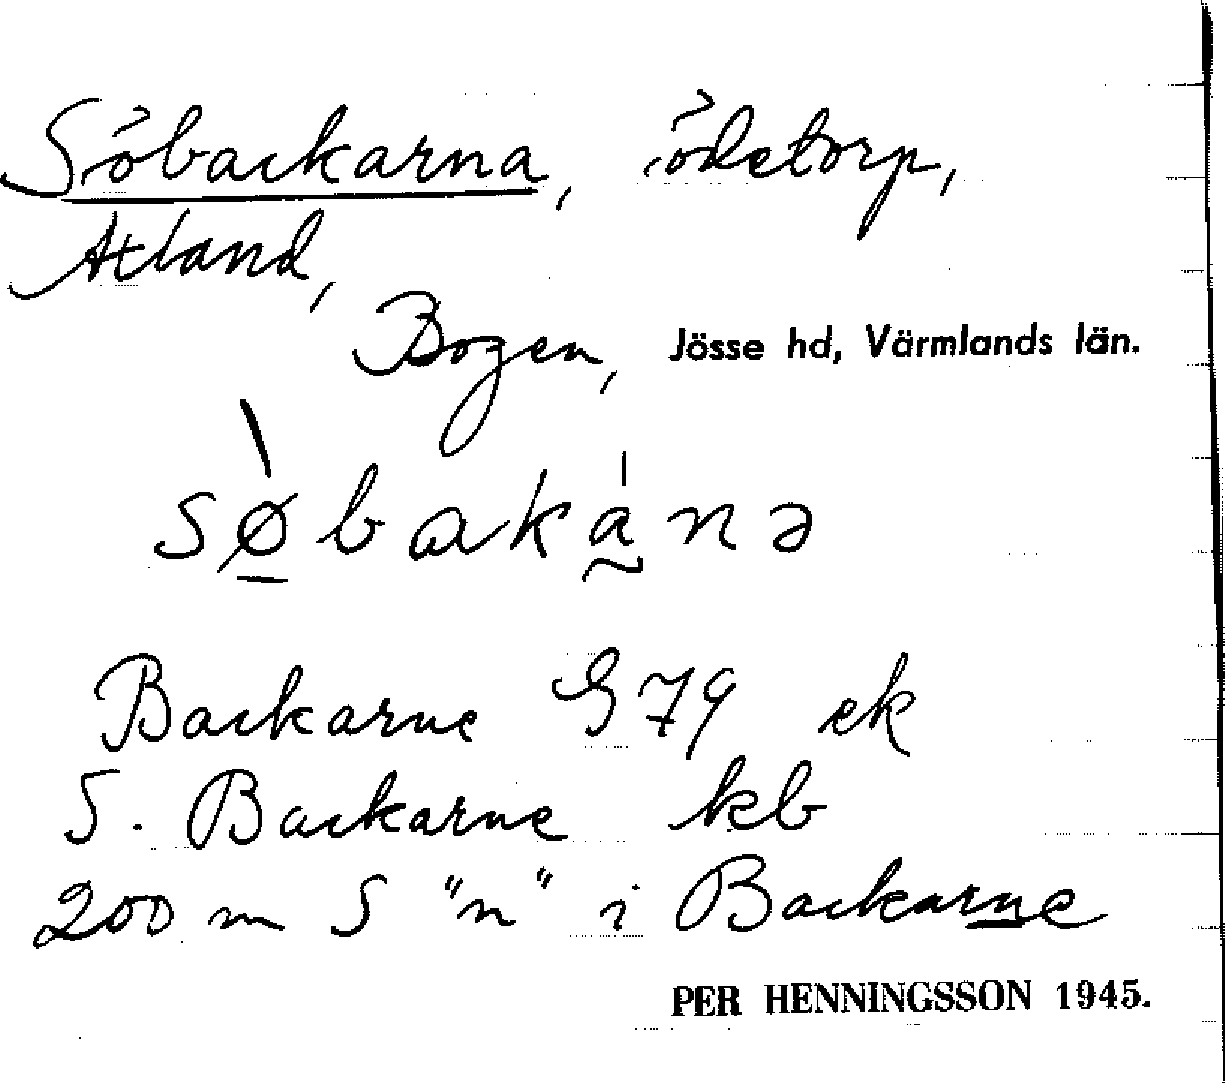 Söbackarna, ödetorp,
Åtland,
Bogen, Jösse hd, Värmlands län.
sø̱̀bakà̰nə
Backarne G79 ek
S. Backarne kb
200 m S "n" i Backarne
PER HENNINGSSON 1945.